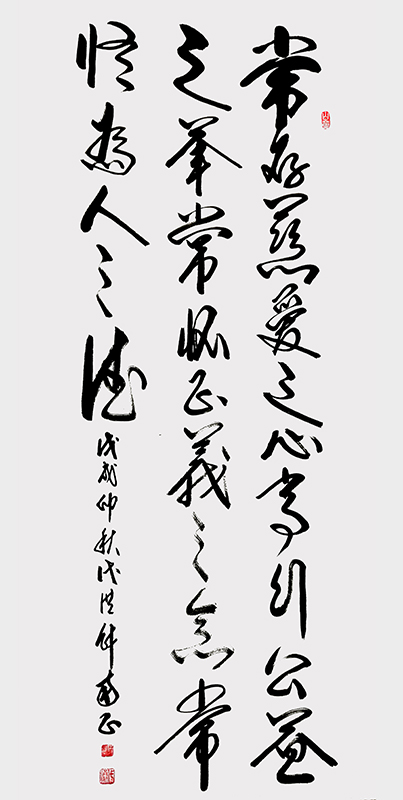 常存慈爱之心常引公益
之举常怀正義之念常
悟為人之德
戊戌仲秋